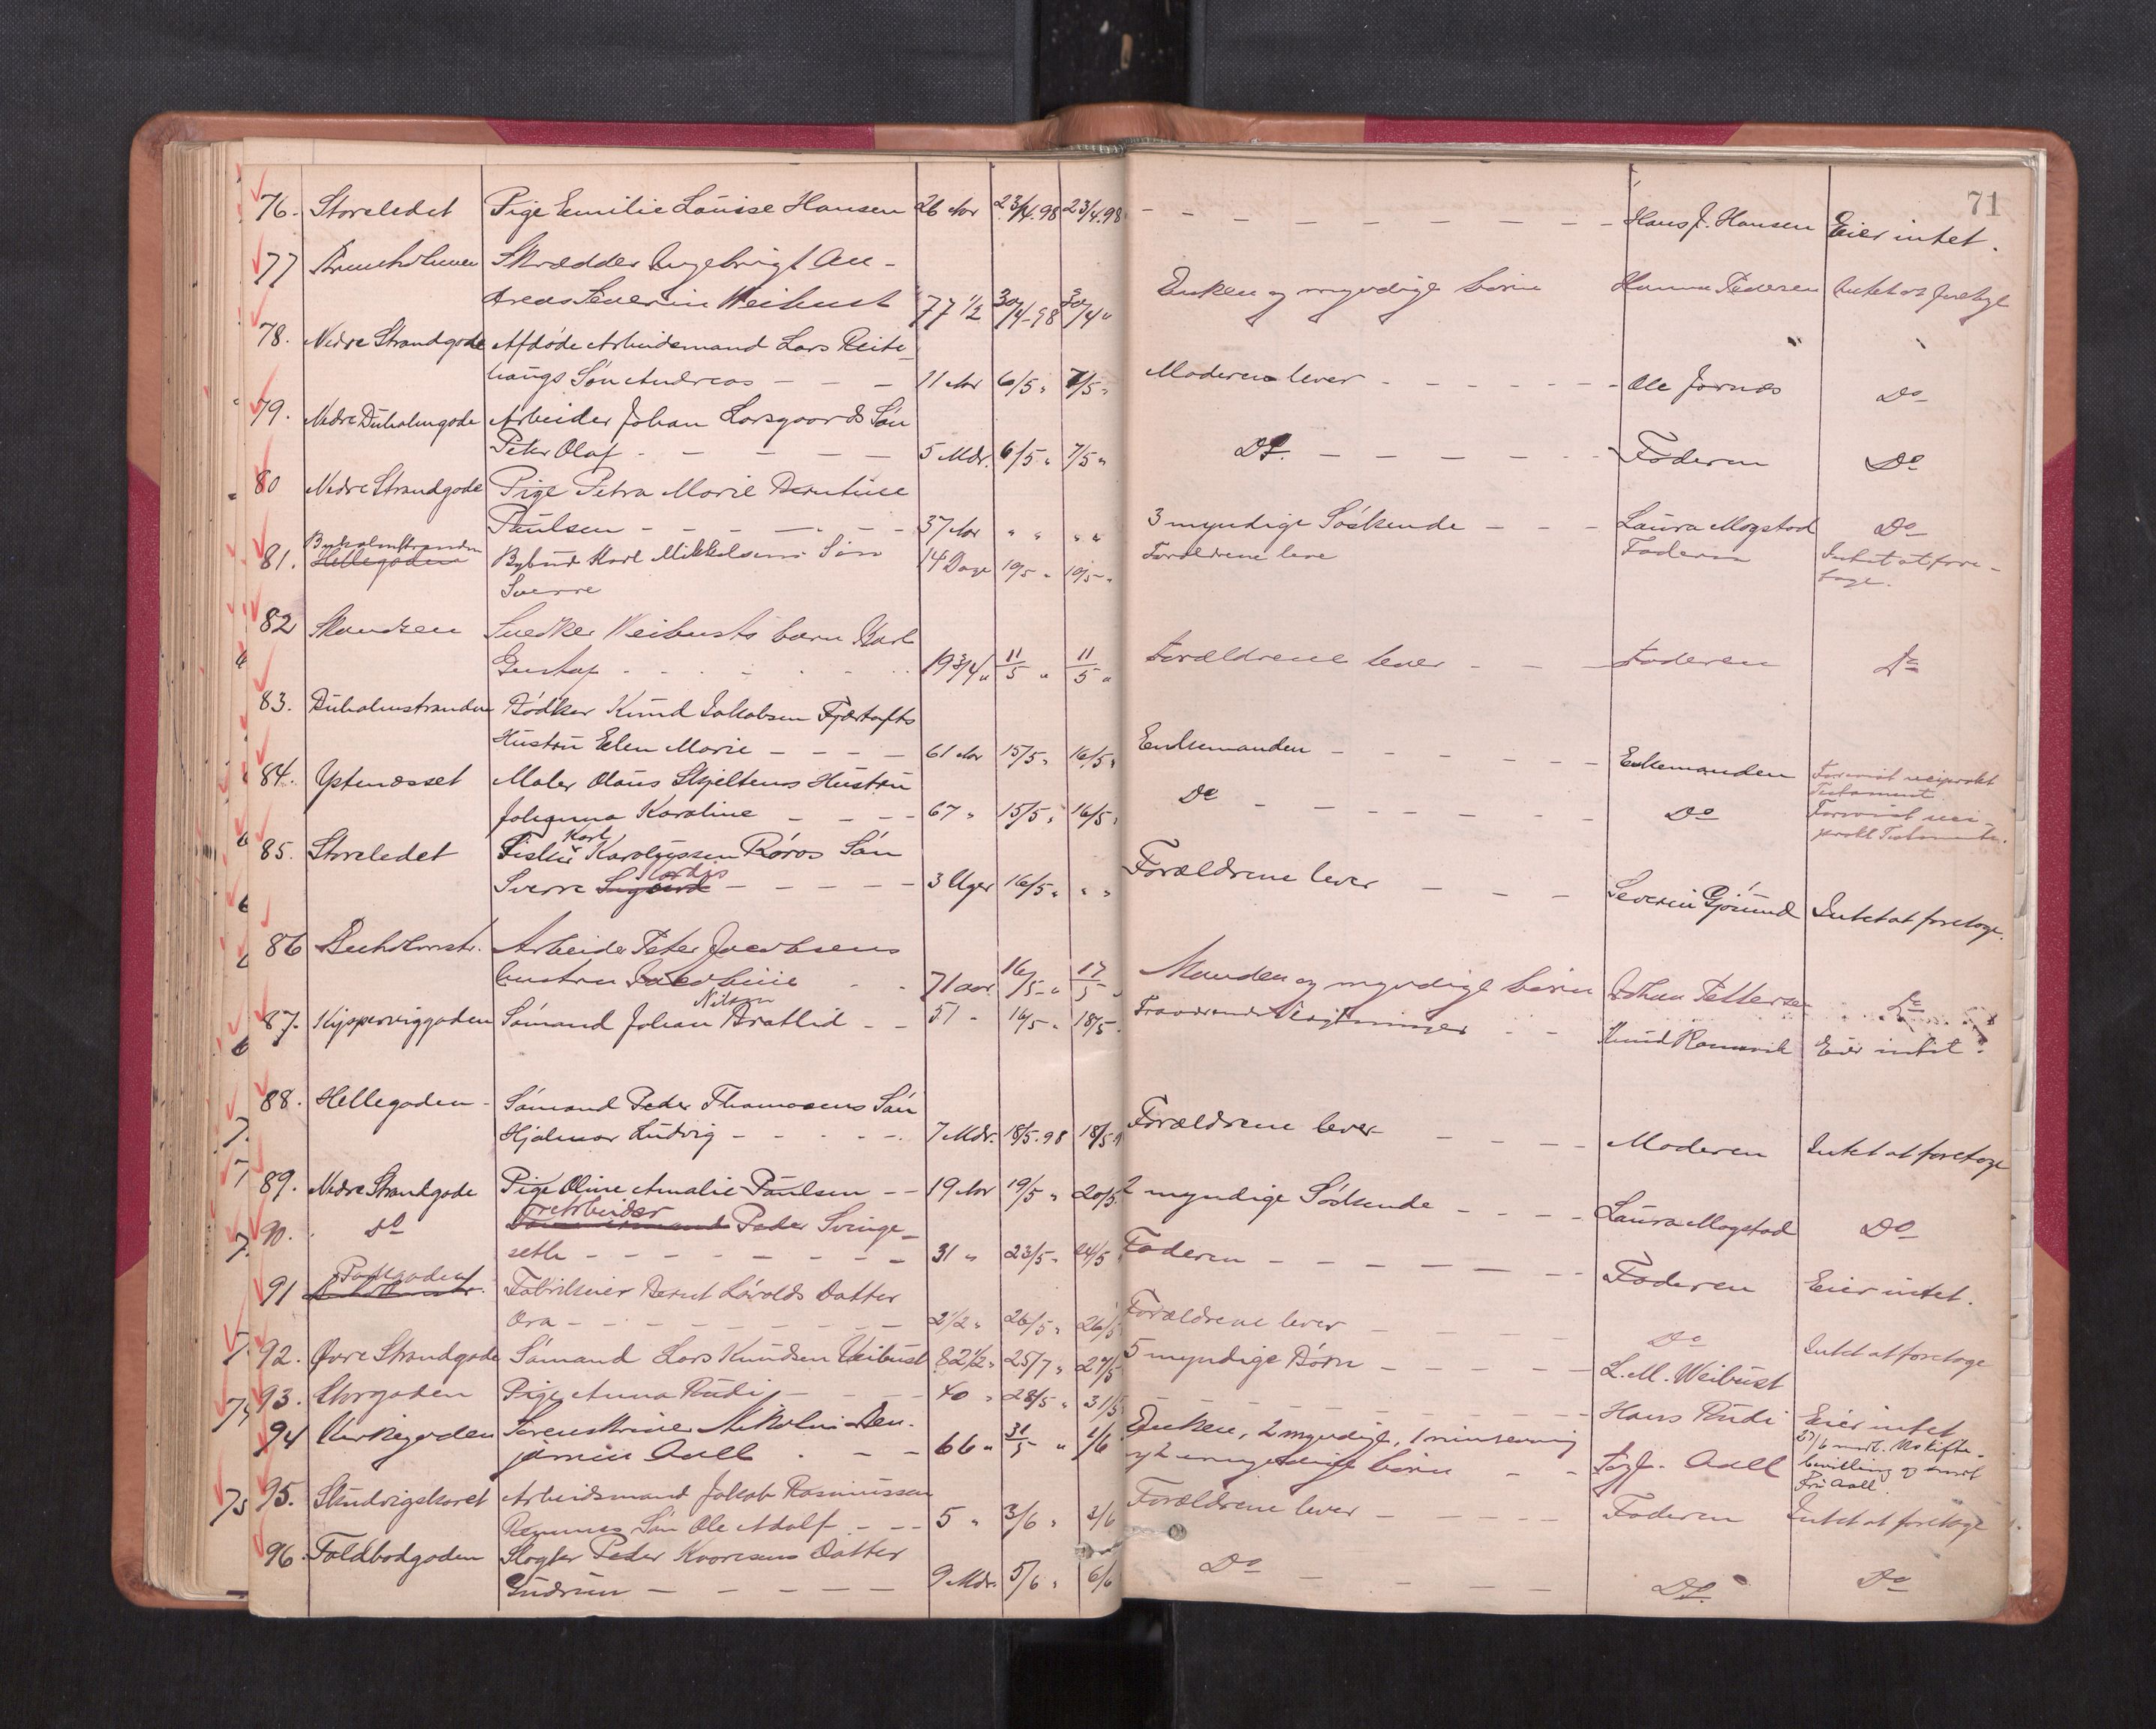 71
76. Storeledet Pige Emilie Louise Hansen 26 Aar 23/4.98 23/4.98 - - - - - - - Hans J. Hansen Eier intet.
77 Skrædder Ingebrigt An-
dreas Severin Weibust 77 1/2 30/4-98 30/4 " Enken og myndige børn Hanna Pedersen Intet at foretage
78. Nedre Strandgade Afdøde Arbeidsmand Lars Reite-
haugs Søn Andreas - - - 11 Aar 6/5 " 7/5 " Moderen lever - - - - - - Ole Jornæs Do
79. Nedre Buholmgade Arbeider Johan Korsgaards Søn
Peter Olaf - - - - - 5 Mdr. 6/5 " 7/5 " Do. - - - - - Faderen Do
80 Nedre Strandgade Pige Petra Marie Berntine
Paulsen - - - - - - 37 Aar " " " " 3 myndige Søskende - - - Laura Mogstad Do
Buholmstranden
81. Hellegaden Bybud Karl Mikkelsens Søn 14 Dage 10/5 " 10/5 " Forældrene leve Faderen Intet at fore-
Sverre tage.
82 Skandsen Snedker Weibusts barn Karl
Gustaf - - - - - 19 3/4 " 11/5 " 11/5 " Forældrene lever - - Faderen Do
83. Buholmstranden Bødker Knud Jakobsen Fjørtofts
Hustru Elen Marie - - - - 61 Aar 15/5 " 16/5 " Enkemanden - - - - - Enkemanden Forevist reciprokt
Testament.
84. Ystenæsset Maler Olaus Skjeltens Hustru
Johanna Karoline - - - - 67 " 15/5 " 16/5 " Do - - - - - - Do Forevist reci-
prokt Testamente.
Karl
85. Storeledet Fisker Karolussen Røros Søn
Sverre Sigurd - - - - - 3 Uger 16/5 " " " Forældrene lever - - - Severin Gjøsund Intet at foretage.
86 Buholmstr. Arbeider Peter Jacobsens
hustru Jacobine - - 71 aar 16/5 - " 17/5 " Manden og myndige børn Johan Pettersen Do
Nilsen
87. Kipperviggaden Sømand Johan Bratlid - - 51 " 16/5 " 18/5 " Fraværende Slegtninger - - Knud Ramsvik Eier intet.
88. Hellegaden - Sømand Peder Thomasens Søn
Hjalmar Ludvig - - - - - 7 Mdr. 18/5.98 18/5 " Forældrene lever - - - - Moderen Intet at foretage
89. Nedre Strandgade Pige Oline Amalie Paulsen - - 19 Aar 19/5 " 20/5 " 2 myndige Søskende - - - - Laura Mogstad Do
Arbeider
90. " Do Peder Svinge-
seth - - - - - - - - 31 " 23/5 " 24/5 " Faderen - - - - - - - Faderen Eier intet.
91 Fabrikeier Bernt Løvolds Datter
Ara - - - - - - - - 2 1/2 " 26/5 " 26/5 Forældrene lever - - - - Do Intet at foretage
92. Øvre Strandgade Sømand Lars Knudsen Weibust 82 1/2 " 25/7 " 27/5 5 myndige Børn - - - - L. M. Weibust
93. Storgaden Pige Anna Rudi - - - - 40 " 28/5 " 31/5 - - - - - - Hans Rudi Eier intet
94 Kirkegaden Toreskriver Nikolai Ben-
jamin Aall - - - 66 " 31/5 " 1/6 Enken, 2 myndige, 1 mindreaarig
og 2 umyndige børn - - Togf. Aall 27/6 medd. Uskifte-
bevilling og sendt
Fru Aall.
95. Skudvigskaret Arbeidsmand Jakob Rasmussen
Remmes Søn Ole Adolf - - - 5 " 3/6 " 3/6 Forældrene lever - - - - - Faderen Intet at foretage
96. Toldbodgaden Slagter Peder Kaaresens Datter
Gudrun - - - - - - 9 Mdr. 5/6 " 6/6 Do - - - - - Do. Do